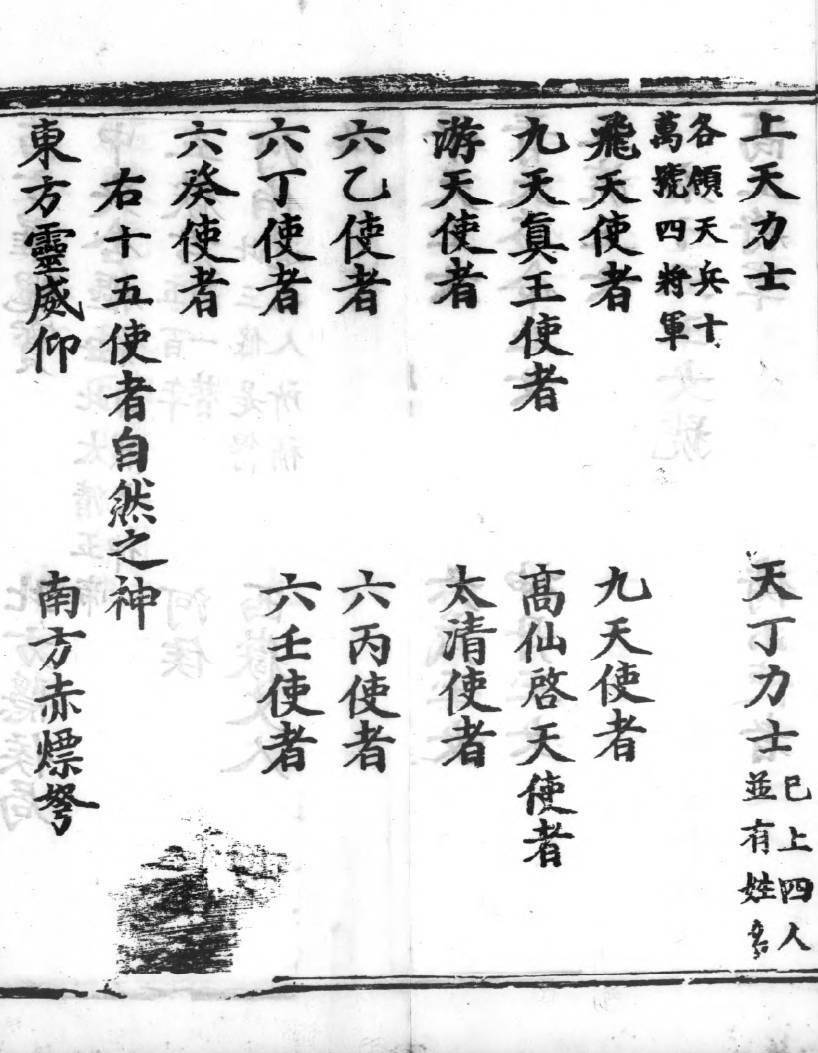 上天力士　天丁力士
巳上四人
並有姓
各領天兵十
萬號四將軍
飛天使者　九天使者
九天眞王使者　髙仙啓天使者
游天使者　太清使者
六乙使者　六丙使者
六丁使者　六壬使者
六癸使者
右十五使者自然之神
東方靈威仰　南方赤熛弩